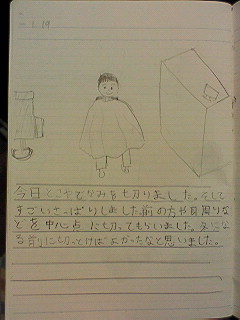 1.19
今日とこやでかみを切りました。そして
すごいさっぱりしました。前の方や耳周りな
どを中心点に切ってもらいました。
る前に切っとけばよかったなと思いました。